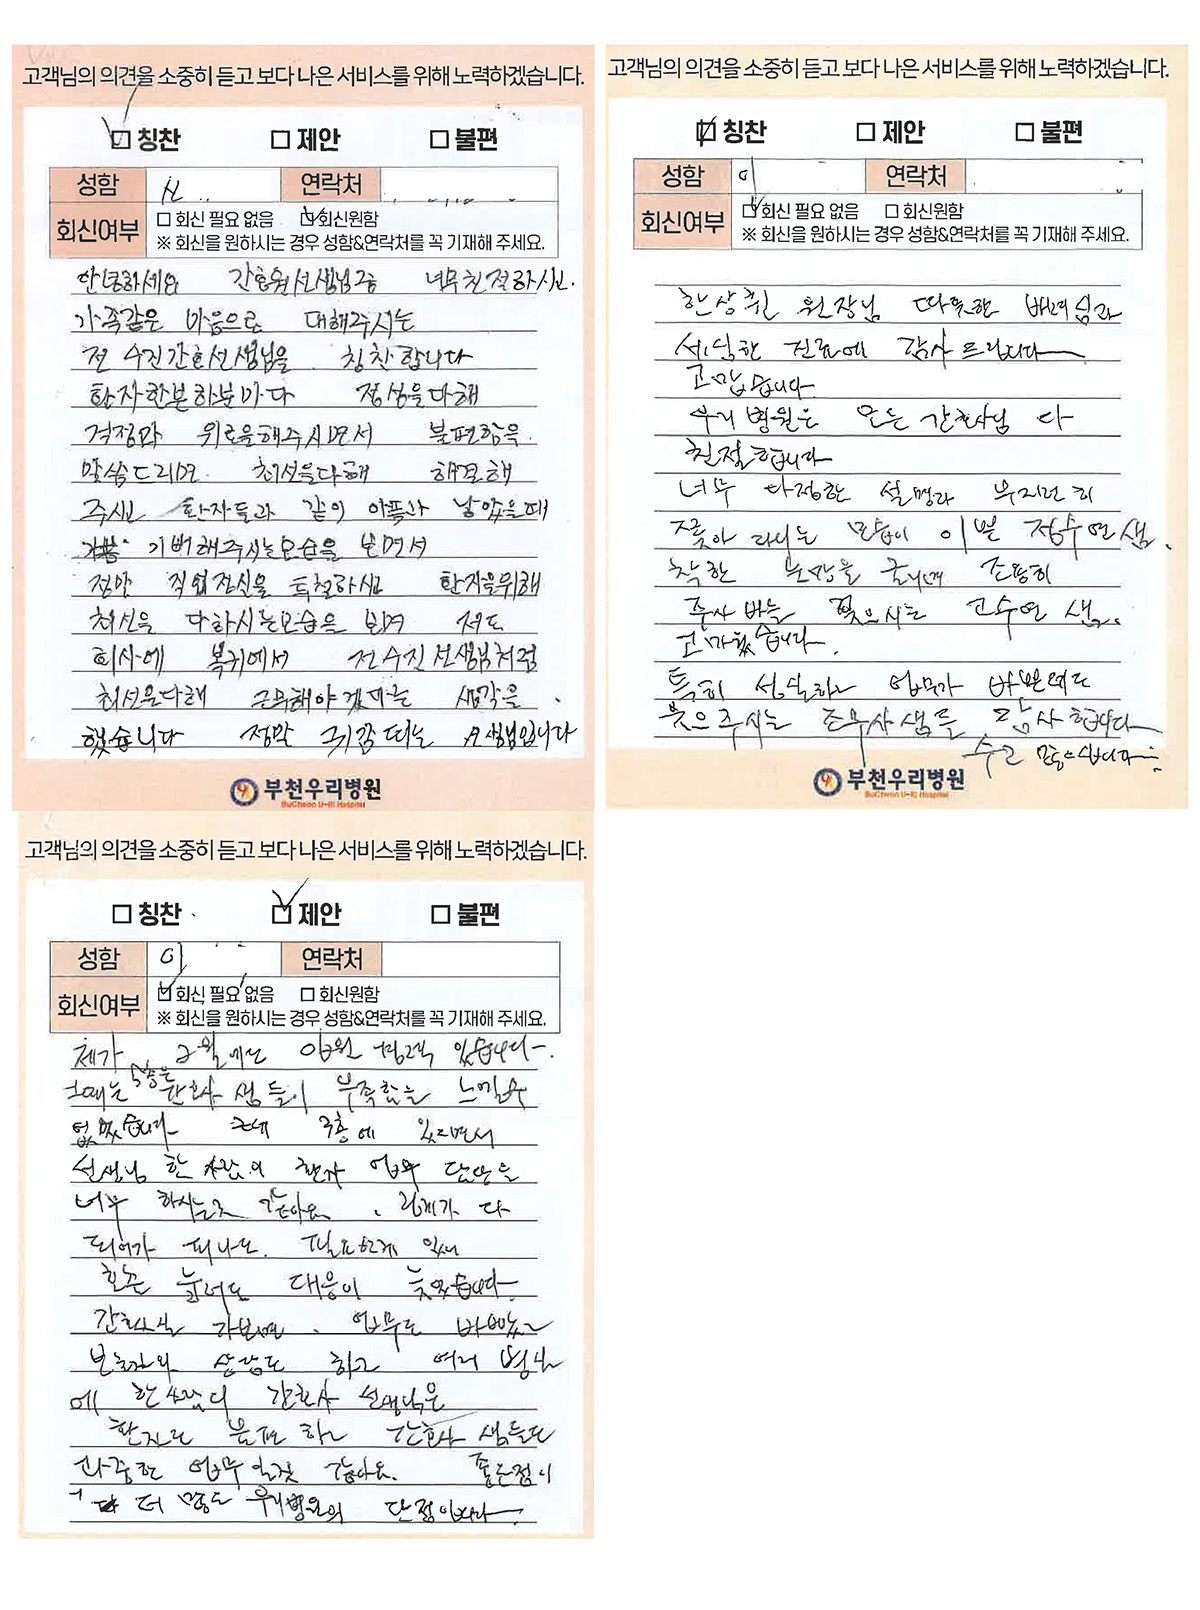 고객님의 의견을 소중히 듣고 보다 나은 서비스를 위해 노력하겠습니다.
칭찬 제안 불편
성함 신 연락처
회신여부 회신 필요 없음 회신원함
※ 회신을 원하시는 경우 성함&연락처를 꼭 기재해 주세요.
안녕하세요 간호원선생님중 너무친절하시고.
가족같은 마음으로 대해주시는
전수진간호선생님을 칭찬합니다
환자한분한분마다 정성을다해
걱정과 위로을해주시면서 불편함을
말씀드리면 최선을다해 해결해
주시고 환자들과 같이 아픔과 낳았을때
기뻐해주시는모습을 보면서
정말 직업정신을 투철하신 환자을위해
최선을 다하시는모습을 보며 저도
회사에 복귀에서 전수진선생님처럼
최선을다해 근무해야겠다는 생각을
했습니다 정말 귀감되는 선생님입니다
부천우리병원
BuCheon U-RI Hospital
고객님의 의견을 소중히 듣고 보다 나은 서비스를 위해 노력하겠습니다.
칭찬 제안 불편
성함 이 연락처
회신여부 회신 필요 없음 회신원함
※ 회신을 원하시는 경우 성함&연락처를 꼭 기재해 주세요.
한상훈 원장님 따뜻한 배려심과
세심한 진료에 감사드립니다
고맙습니다
우리병원은 모든 간호사님 다
친절합니다
너무 다정한 설명과 부지런히
쫓아 다니는 모습이 이쁜 정수연샘.
착한 조용히
주사 바늘 꽂으시는 고수연 샘.
고마웠습니다.
특히 성실하고 업무가 바쁜데도
웃으주시는 조무사샘들 감사합니다
수고 많으십니다
부천우리병원
BuCheon U-RI Hospital
고객님의 의견을 소중히 듣고 보다 나은 서비스를 위해 노력하겠습니다.
칭찬 제안 불편
성함 이 연락처
회신여부 회신 필요 없음 회신원함
※ 회신을 원하시는 경우 성함&연락처를 꼭 기재해 주세요.
제가 2월에도 입원 경력 있습니다.
그때는 5층은 간호사 샘들이 부족함을 느낄수
없었습니다 근데 3층에 있으면서
선생님 한사람의 환자 업무 담당을
너무 하시는것 같아요. 링게가 다
되어가 피나도 필요한게 있어
호출 눌러도 대응이 늦었습니다.
간호사실 가보면. 업무도 바쁘고
보호자와 상담도 하고 여러 병실
에 한사람의 간호사 선생님은
환자도 불편하고 간호사 샘들도
과중한 업무일것 같아요. 좋은점이
더 많은 우리병원의 단점입니다.